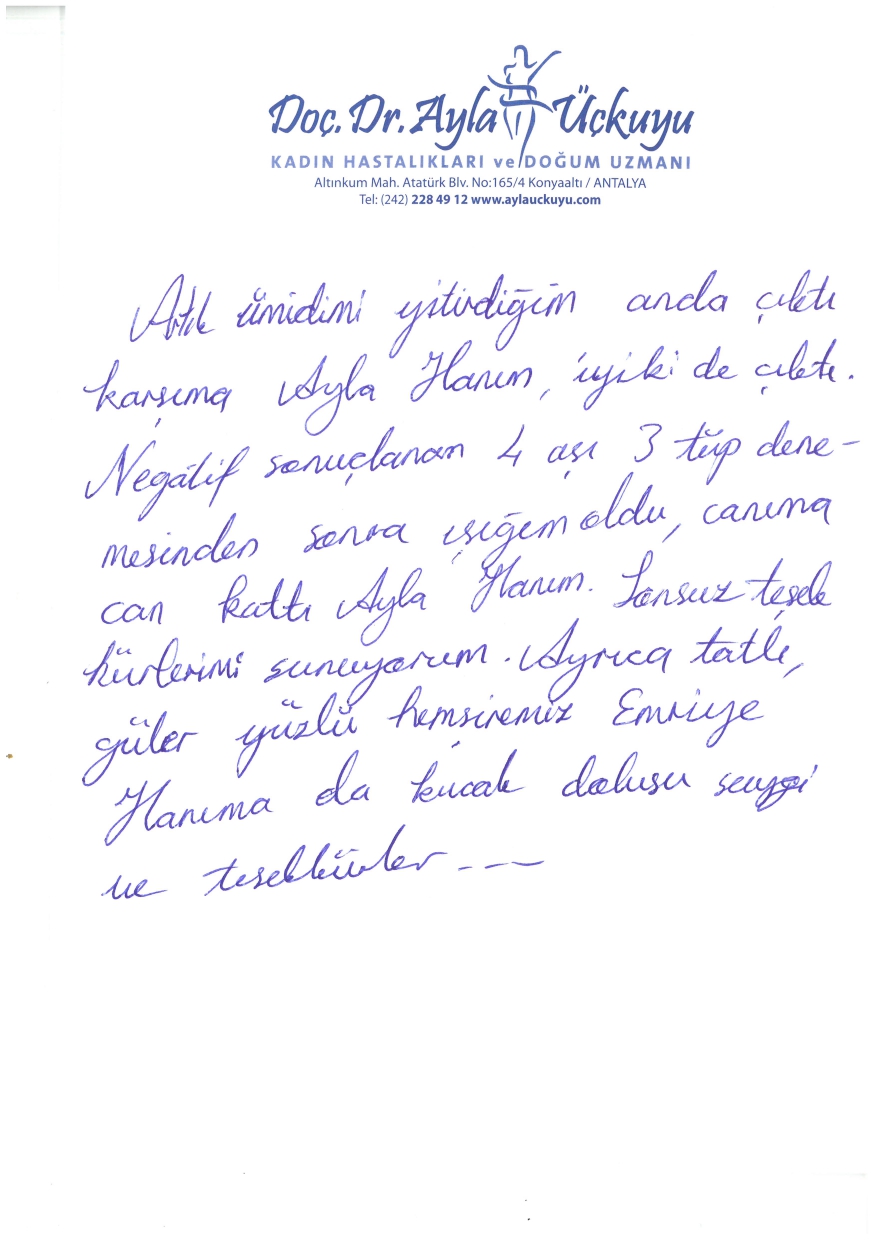 Doç. Dr. Ayla Üçkuyu
KADIN HASTALIKLARI ve DOĞUM UZMANI
Altınkum Mah. Atatürk Blv. No:165/4 Konyaaltı / ANTALYA
Tel: (242) 228 49 12 www.aylauckuyu.com
Artık ümidimi yitirdiğim anda çıktı
karşıma Ayla Hanım, iyiki de çıktı.
Negatif sonuçlanan 4 aşı 3 tüp dene-
mesinden sonra ışığım oldu, canıma
can kattı Ayla Hanım. Sonsuz teşek
kürlerimi sunuyorum. Ayrıca tatlı,
güler yüzlü hemşiremiz Emriye
Hanıma da kucak dolusu sevgi
ve teşekkürler ---